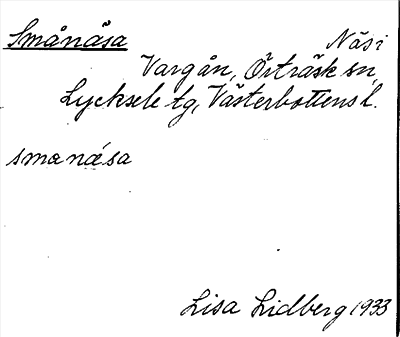 Smånäsa Näs i
Vargån, Örträsk sn,
Lycksele tg, Västerbottens l.
smanǽsa
Lisa Lidberg 1933